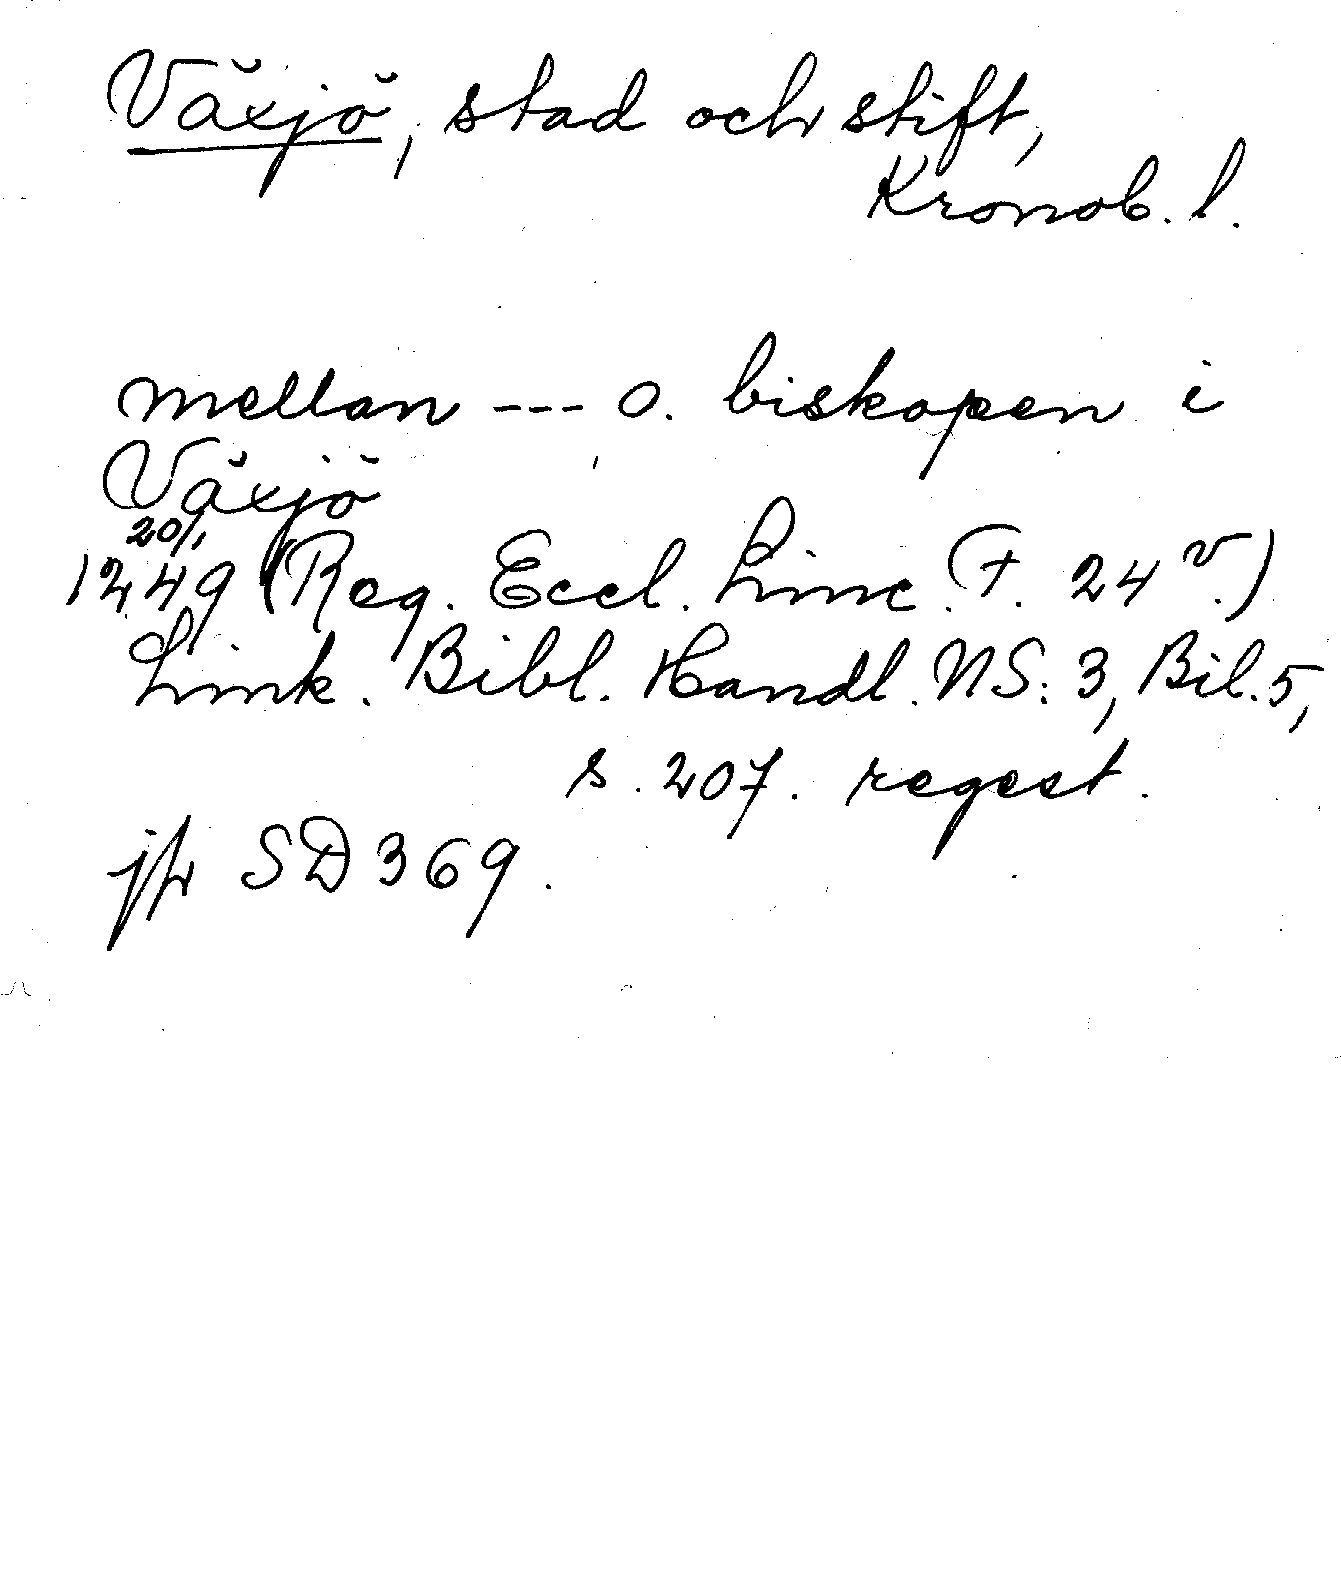 Växjö, stad och stift,
Kronob. l.
mellan --- o. biskopen i
Växjö
20/1
1249 (Reg. Eccl. Linc. F. 24 v.)
Link. Bibl. Handl. NS. 3, Bil. 5,
s. 207. regest.
jfr SD 369.